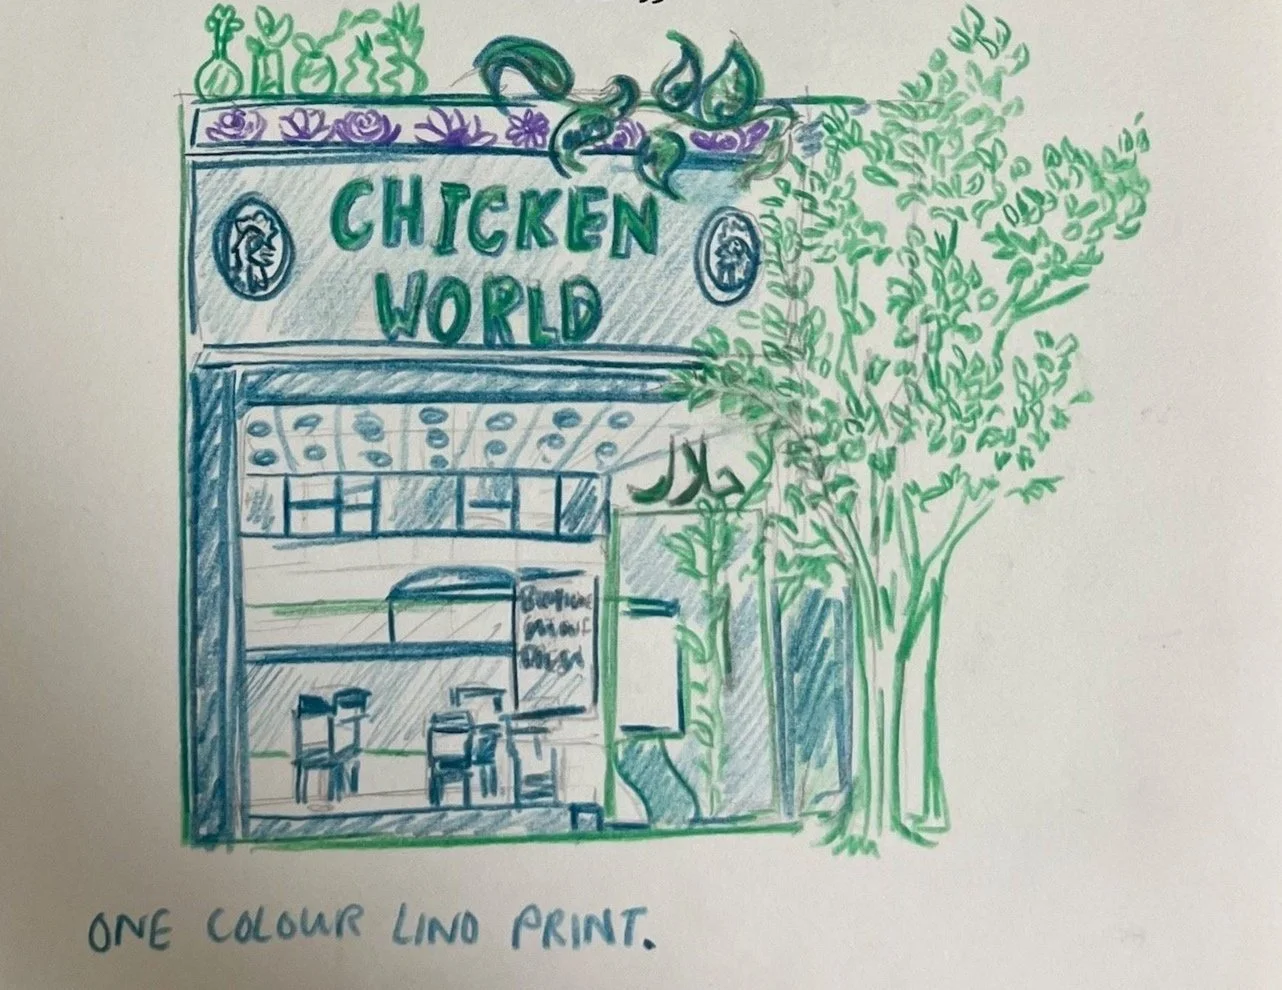 CHICKEN
WORLD
حلال
ONE COLOUR LINO PRINT.